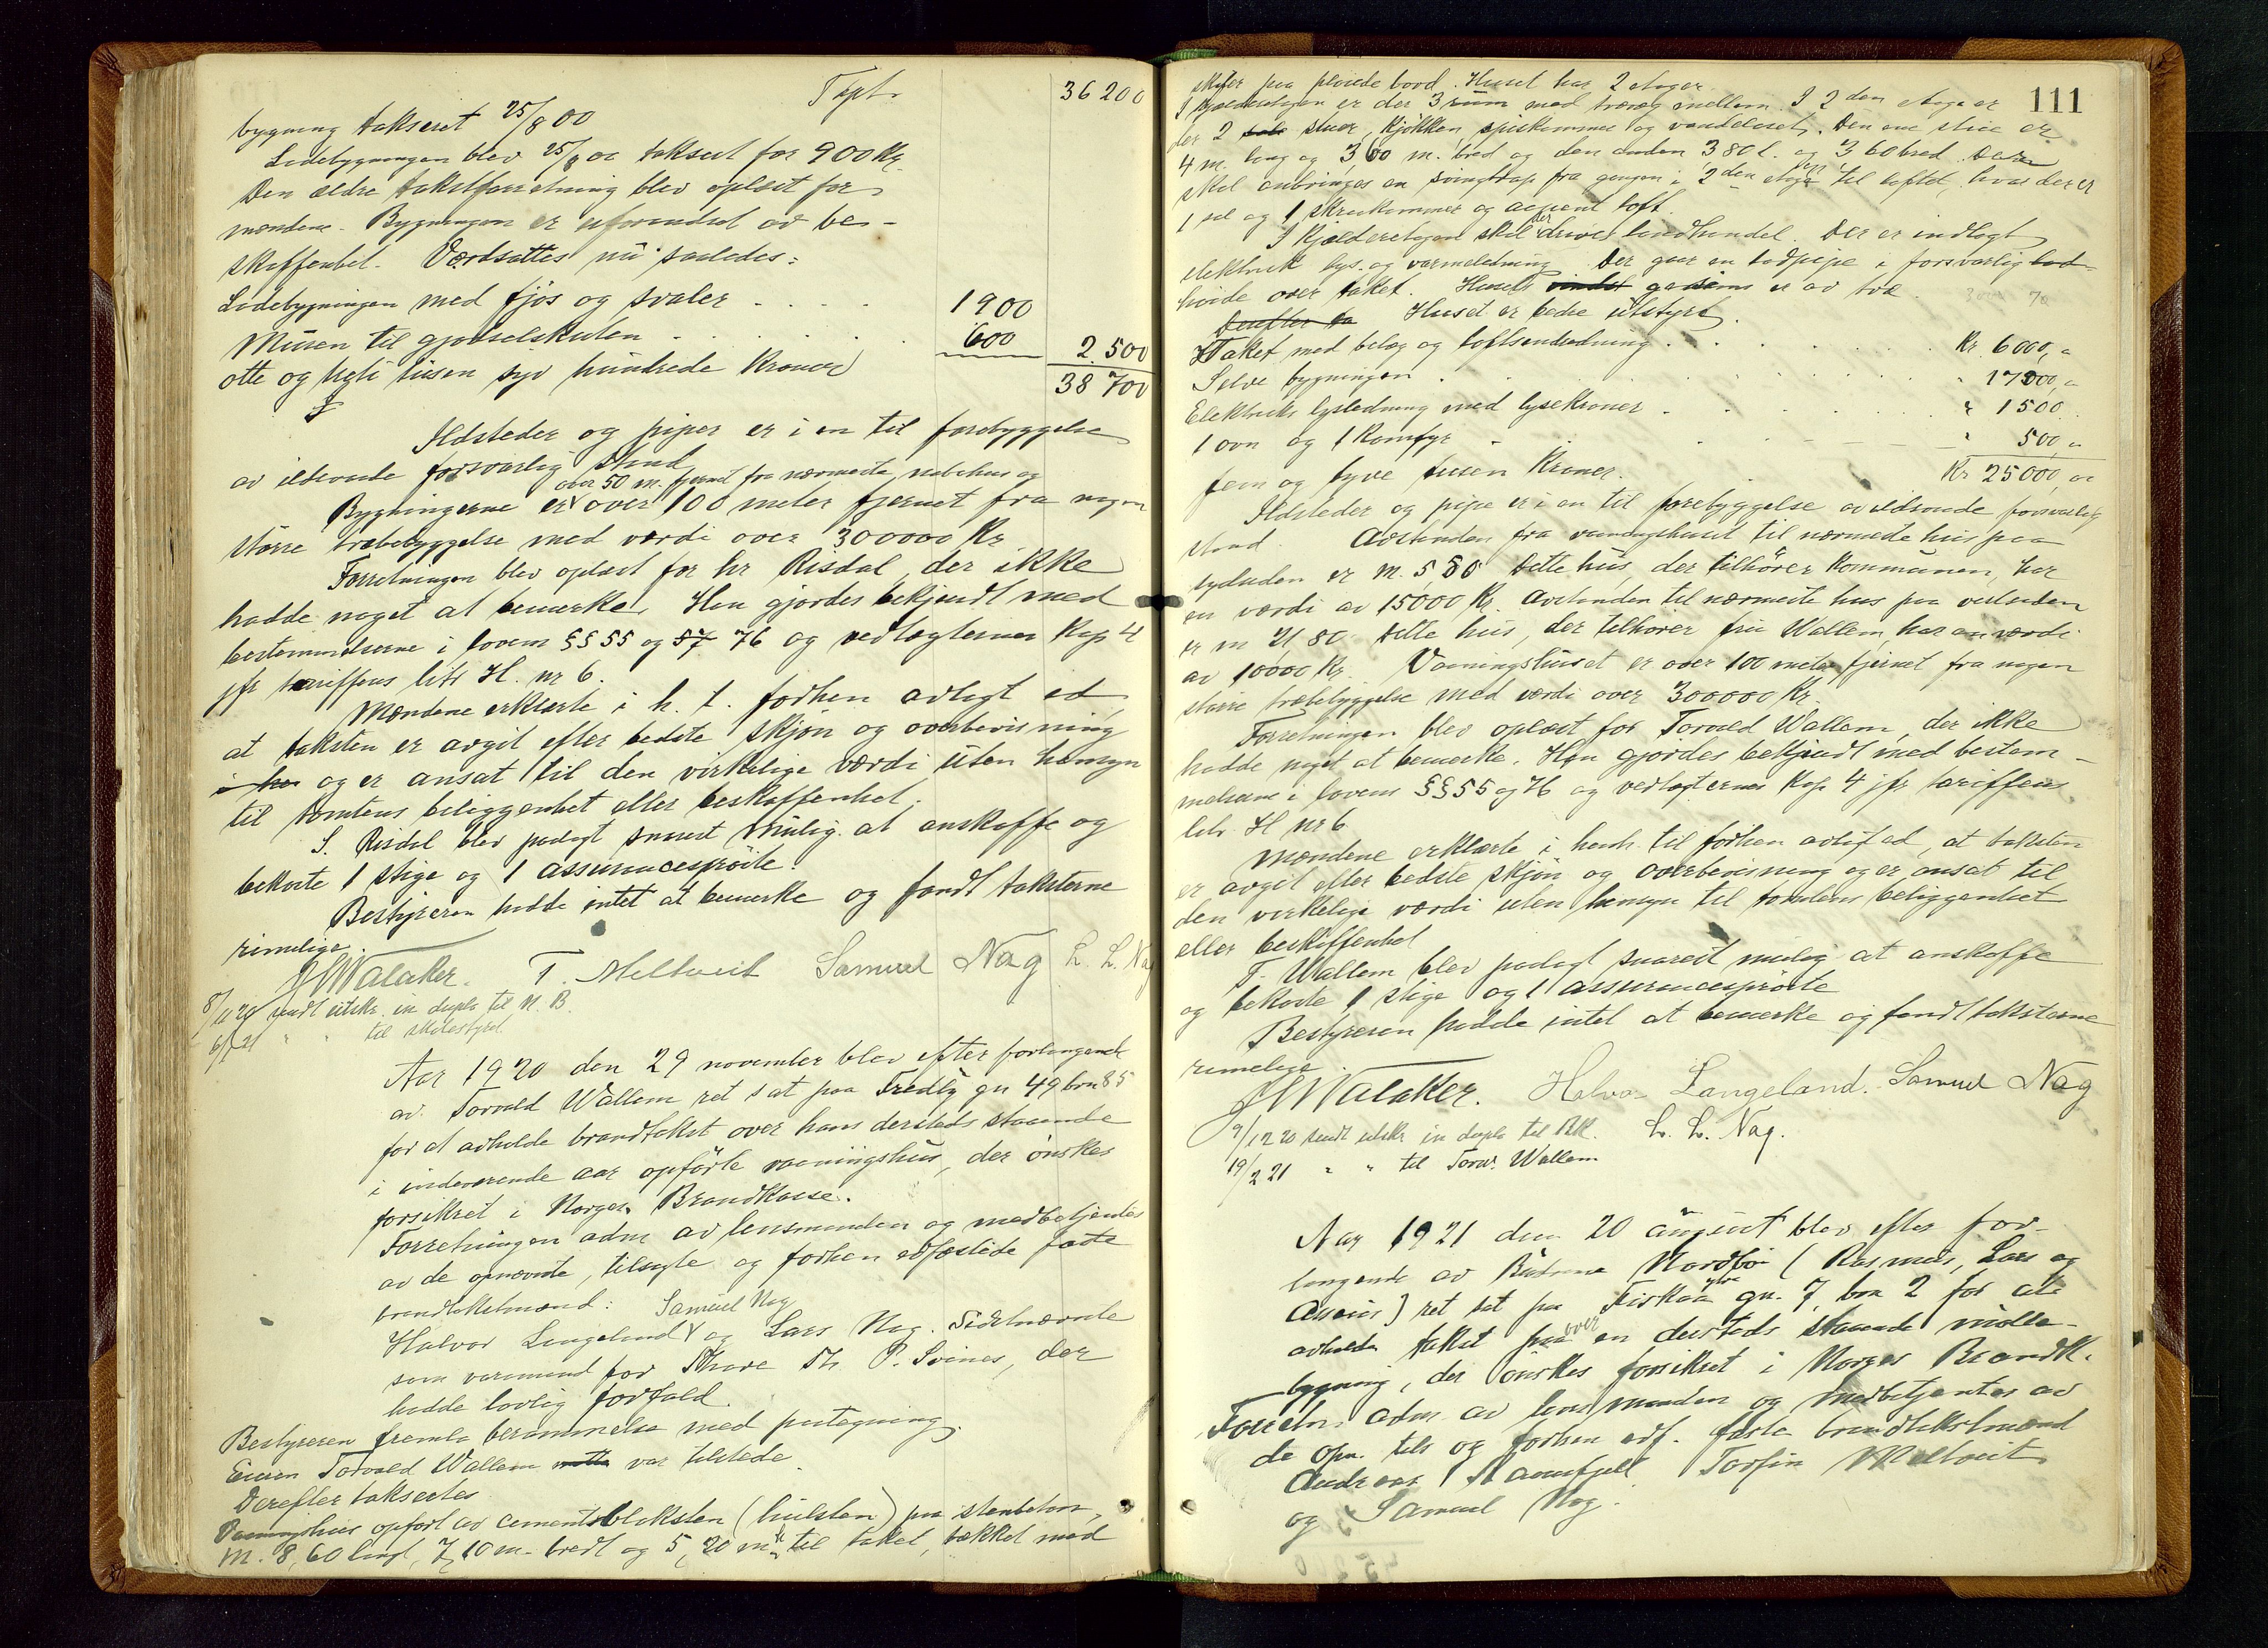 Tspt. 36 200
bygning takseret 25/8 00
Ladebygningen blev 25/8 00 taksert for 900 Kr.
Den ældre takstforretning blev oplæst for
mændene. Bygningen er uforandret av be-
skaffenhet. Værdsættes nu saaledes:
Ladebygningen med fjøs og svaler . . . . 1900
Muren til gjødselskuten . . . . . 600 2.500
otte og treti tusen syv hundrede Kroner 38 700
Ildsteder og piper er i en til forebyggelse
av ildsvaade forsvarlig stand
over 50 m. fjernet fra nærmeste nabohus og
Bygningerne er over 100 meter fjernet fra nogen
større træbebyggelse med værdi over 300000 Kr
Forretningen blev oplæst for hr Risdal, der ikke
hadde noget at bemerke. Han gjordes bekjendt med
bestemmelserne i lovens §§ 55 og 57 76 og vedtægternes Kap 4
jfr tariffens litr H. nr 6.
Mændene erklærte i h. t. forhen avlagt ed,
at taksten er avgit efter bedste skjøn og overbevisning
i hen og er ansat til den virkelige værdi uten hensyn
til tomtens beliggenhet eller beskaffenhet.
S. Risdal blev paalagt snarest mulig at anskaffe og
bekoste 1 stige og 1 assurancesprøite.
Bestyreren hadde intet at bemerke og fandt taksterne
rimelige.
J Walaker. T. Meltveit Samuel Nag L. L. Nag
8/12 20 sendt utskr. in duplo til N. B.
6/1 21 " " til skolestyret
Aar 1920 den 29 november blev efter forlangende
av Torvald Wallem ret sat paa Fredly gn 49 brn 85
for at avholde brandtakst over hans dersteds staaende
i indeværende aar opførte vaaningshus, der ønskes
forsikret i Norges Brandkasse.
Forretningen adm av lensmanden og medbetjentes
av de opnævnte, tilsagte og forhen edfæstede faste
brandtakstmænd: Samuel Nag
Halvor Langeland og Lars Nag. Sidstnævnte
som varamand for Th. P. Svines, der
hadde lovlig forfald.
Bestyreren fremla berammelse med paategning.
Eieren Torvald Wallem var tilstede.
Derefter taksertes
Vaaningshus opført av cementsbloksten (hulsten) paa stenbeton,
M. 8,60 langt, 7,10 m. bredt og 5,20 m til taket, tækket med
111
skifer paa pløiede bord. Huset har 2 etager.
I kjælderetagen er der 3 rum med trævæg mellem. I 2den etage er
der 2 stuer, kjøkken, spiskammer og vandcloset. Den ene stue er
4 m. lang og 3,60 m. bred og den anden 3,80 l. og 3,60 bred. Der
skal anbringes en svingtrap fra gangen i 2den etage til loftet, hvor der er
1 sal og 1 skraakammer og aapent loft.
I kjælderetagen skal der drives landhandel. Der er indlagt
elektrisk lys- og varmeledning. Der gaar en lodpipe i forsvarlig
høide over taket. Husets er av træ.
Derefter ta Huset er bedre utstyrt.
Taket med belæg og loftsindredning . . . . Kr. 6000,"
Selve bygningen . . . . " 17000,"
Elektrisk lysledning med lysekroner . . . . " 1500
1 ovn og 1 Komfyr . . . . " 500,"
fem og tyve tusen Kroner. Kr 25000,00
Ildsteder og pipe er i en til forebyggelse av ildsvaade forsvarlig
stand. Avstanden fra vaaningshuset til nærmeste hus paa
sydsiden er m. 5,80 Dette hus, der tilhører Kommunen, har
en værdi av 15000 Kr. Avstanden til nærmeste hus paa vestsiden
er m 21,80. Dette hus, der tilhører fru Wallem, har en værdi
av 10000 Kr. Vaaningshuset er over 100 meter fjernet fra nogen
større træbebyggelse med værdi over 300000 Kr.
Forretningen blev oplæst for Torvald Wallem, der ikke
hadde noget at bemerke. Han gjordes bekjendt med bestem-
melserne i lovens §§ 55 og 76 og vedtægternes Kap 4 jfr tariffens
litr. H nr 6
Mændene erklærte i henh. til forhen avlagt ed, at taksten
er avgit efter bedste skjøn og overbevisning og er ansat til
den virkelige værdi uten hensyn til tomtens beliggenhet
eller beskaffenhet
T. Wallem blev paalagt snarest mulig at anskaffe
og bekoste 1 stige og 1 assurancesprøite
Bestyreren hadde intet at bemerke og fandt taksterne
rimelige.
J Walaker. Halvor Langeland. Samuel Nag
9/12 20 sendt utskr in duplo til BK. L. L. Nag.
19/2 21 " " til Torv. Wallem
Aar 1921 den 20 august blev efter for-
langende av Brødrene Nordbø (Rasmus, Lars og
Assius) ret sat paa Fiskaa gn. 7, brn 2 for at
avholde takst paa over en dersteds staaende mølle-
bygning, der ønskes forsikret i Norges Brandk.
Forretn. adm. av lensmanden og medbetjentes av
de opn. tils og forhen edf. faste brandtakstmænd
Andreas Ramsfjell Torfin Meltveit
og Samuel Nag.